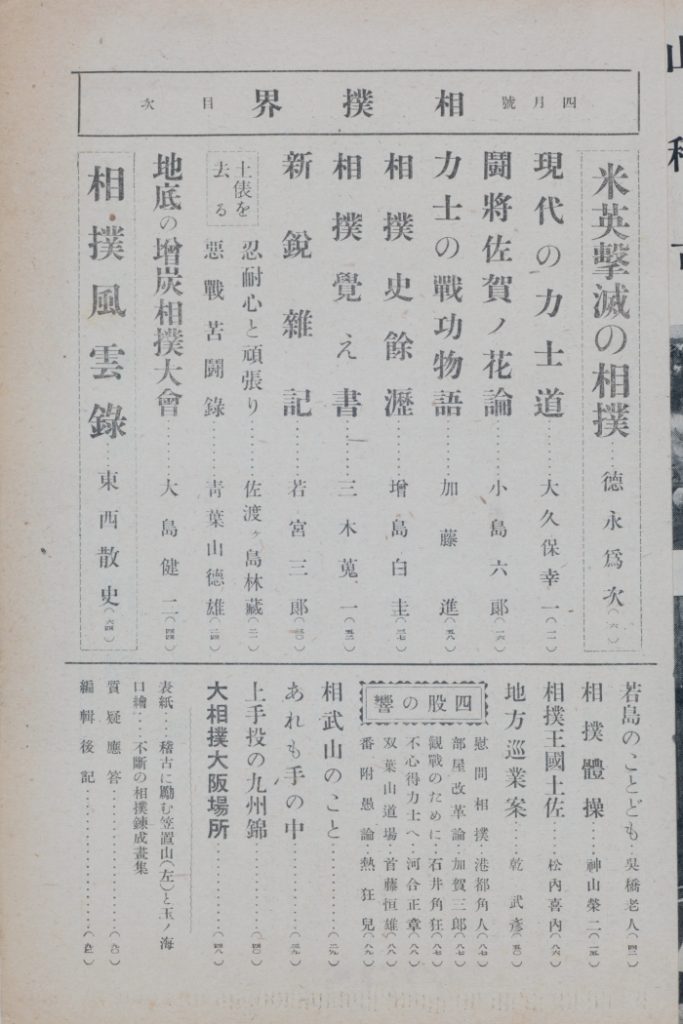 四月號 相撲界 目次
米英擊滅の相撲…德永爲次(六)
現代の力士道…大久保幸一(一一)
鬪將佐賀ノ花論…小島六郞(一六)
力士の戰功物語…加藤進(五八)
相撲史餘瀝…增島白圭(三七)
相撲覺え書…三木蒐一(五三)
新銳雜記…若宮三郞(三〇)
土俵を去る
忍耐心と頑張り…佐渡ヶ島林藏(二一)
惡戰苦鬪錄…靑葉山德雄(二四)
地底の增炭相撲大會…大島健二(四四)
相撲風雲錄…東西散史(六四)
若島のことども…吳橋老人(四二)
相撲體操…神山榮二(一五)
相撲王國土佐…松內喜內(八六)
地方巡業案…乾武彥(五〇)
四股の響
慰問相撲…港都角人(八七)
部屋改革論…加賀三郞(八七)
觀戰のために…石井角狂(八七)
不心得力士へ…河合正章(八八)
双葉山道場…首藤恒雄(八八)
番附愚論…熱狂兒(八九)
相武山のこと…(二九)
あれも手の中…(三九)
上手投の九州錦…(四〇)
大相撲大阪場所…(四八)
表紙…稽古に勵む笠置山(左)と玉ノ海
口繪…不斷の相撲鍊成畫集
質疑應答…(九〇)
編輯後記…(九二)
山稽古